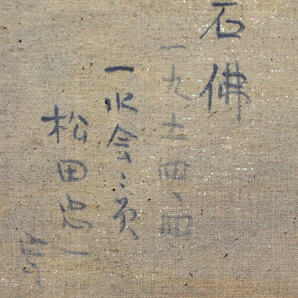 石佛
一九五四、四
一水会々員
松田忠一